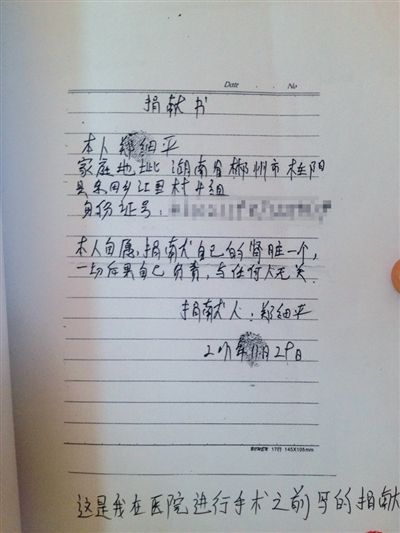 Date . . No
捐献书
本人郑细平
家庭地址 湖南省郴州市桂阳
县东田乡江里村4组
身份证号:
本人自愿,捐献自己的肾脏一个,
一切后果自己负责,与任何人无关.
捐献人:郑细平
年11月29日
17行 145X106mm
这是我在医院进行手术之前写的捐献